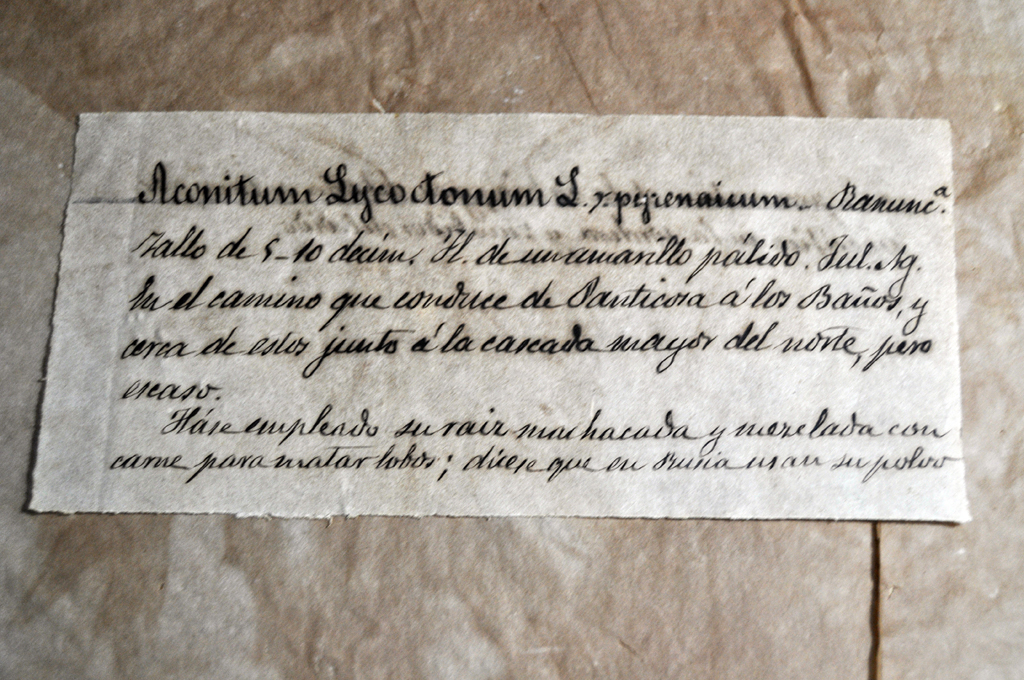 Aconitum Lycoctonum L. γ pyrenaicum. Ranunc.ª
Tallo de 5-10 decím. Fl. de un amarillo pálido. Jul. Ag.
En el camino que conduce de Panticosa á los Baños, y
cerca de estos junto á la cascada mayor del norte, pero
escaso.
Háse empleado su raiz machacada y mezclada con
carne para matar lobos; dícese que en Rusia usan su polvo